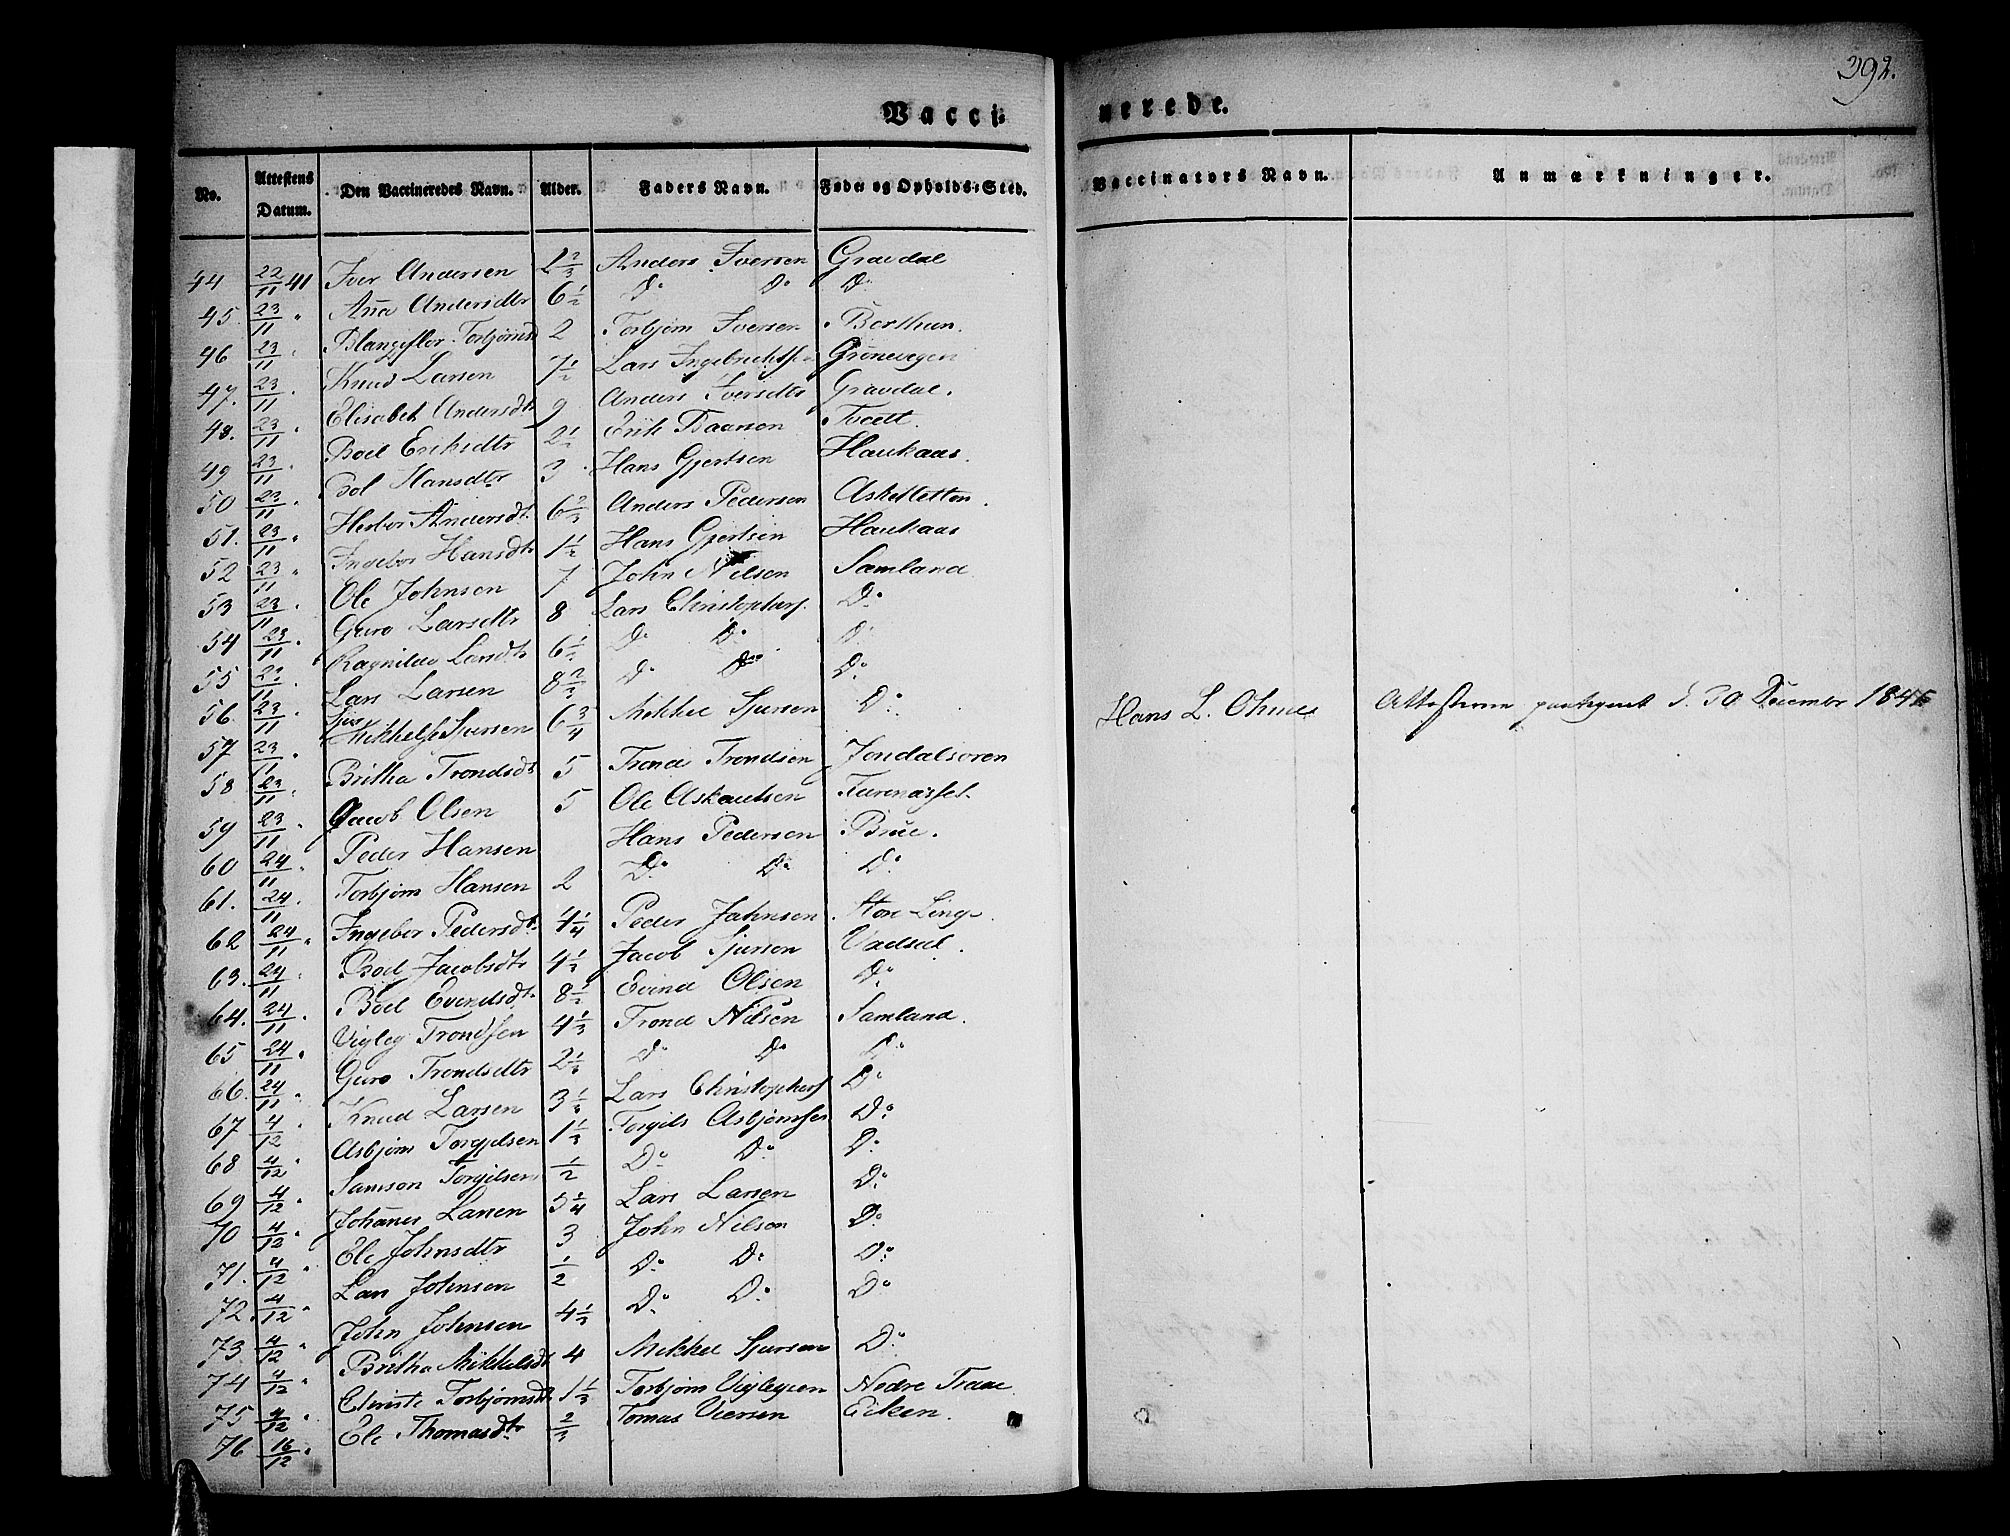 392.
Vacci- nerede.
No. Attestens Datum. Den Vaccineredes Navn. Alder. Faders Navn. Føde og Opholds-Sted. Vaccinators Navn. Anmærkninger.
44 22/11 41 Iver Andersen 2 2/3 Anders Iversen Gravdal
45. 23/11 " Aña Andersdtr 6 1/2 Do Do Do
46 23/11 " Torbjørnsd 2 Torbjørn Iversen Berthun.
47. 23/11 " Knud Larsen 7 1/2 Lars Gronevegen
48. 23/11 " Elisabet Andersdtr 9 Anders Gravdal.
49 23/11 " Boel Eriksdtr 2 1/2 Erik Baarsen Tveett.
50 23/11 " Bol Hansdtr 3 Hans Gjertsen Haukaas.
51. 23/11 " Andersdt. 6 2/3 Anders Pedersen
52 23/11 " Ingebor Hansdtr 1 1/2 Hans Gjertsen Haukaas
53 23/11 " Ole Johnsen 7 John Nilsen Samland
54 23/11 " Guro Larsdtr 8 Lars Christophers. Do
55 23/11 " Ragnilde Larsdtr 6 1/2 Do Do Do
56. 23/11 " Lars Larsen 8 2/3 Do Do Do
57 23/11 " Sjursen 6 3/4 Mikkel Sjursen Do Hans L. Ohnes d. 30 December
58 23/11 " Britha Trondsdtr 5 Trond Trondsen Jondalsoren
59 23/11 " Jacob Olsen 5 Ole
60 24/11 " Peder Hansen Hans Pedersen Brue.
61. 24/11 Torbjørn Hansen 2 Do Do Do
62 24/11 " Ingebor Pedersdt. 4 1/4 Peder Johnsen
63. 24/11 Boel Jacobsdtr 4 1/3 Jacob Sjursen
64. 24/11 " Boel Evindsdt. Evind Olsen Do
65 24/11 " Vigleg Trondsen 4 1/3 Trond Nilsen Samland.
66. 24/11 " Guro Trondsdtr Do Do Do
67 4/12 " Knud Larsen Lars Christophers Do
68 4/12 " Asbjørn Torgilsen 1 1/3 Torgils Asbjørnsen Do
69 4/12 " Samson Torgilsen 1/2 Do Do Do
70 4/12 " Johanes Larsen Lars Larsen Do
71. 4/12 " Ele Johnsdtr 3 John Nilsen Do
72. 4/12 " Lars Johnsen 1/2 Do Do Do
73. 4/12 " John Johnsen 4 1/3 Do Do Do
74 4/12 " Britha Mikkelsdt 4 Mikkel Sjursen Do
75 4/12 " Christe Torbjørnsdtr 1 1/3 Torbjørn Viglegsen Nedre
76 16/12 " Ele Thomasdtr 2/3 Tomas Eiken.